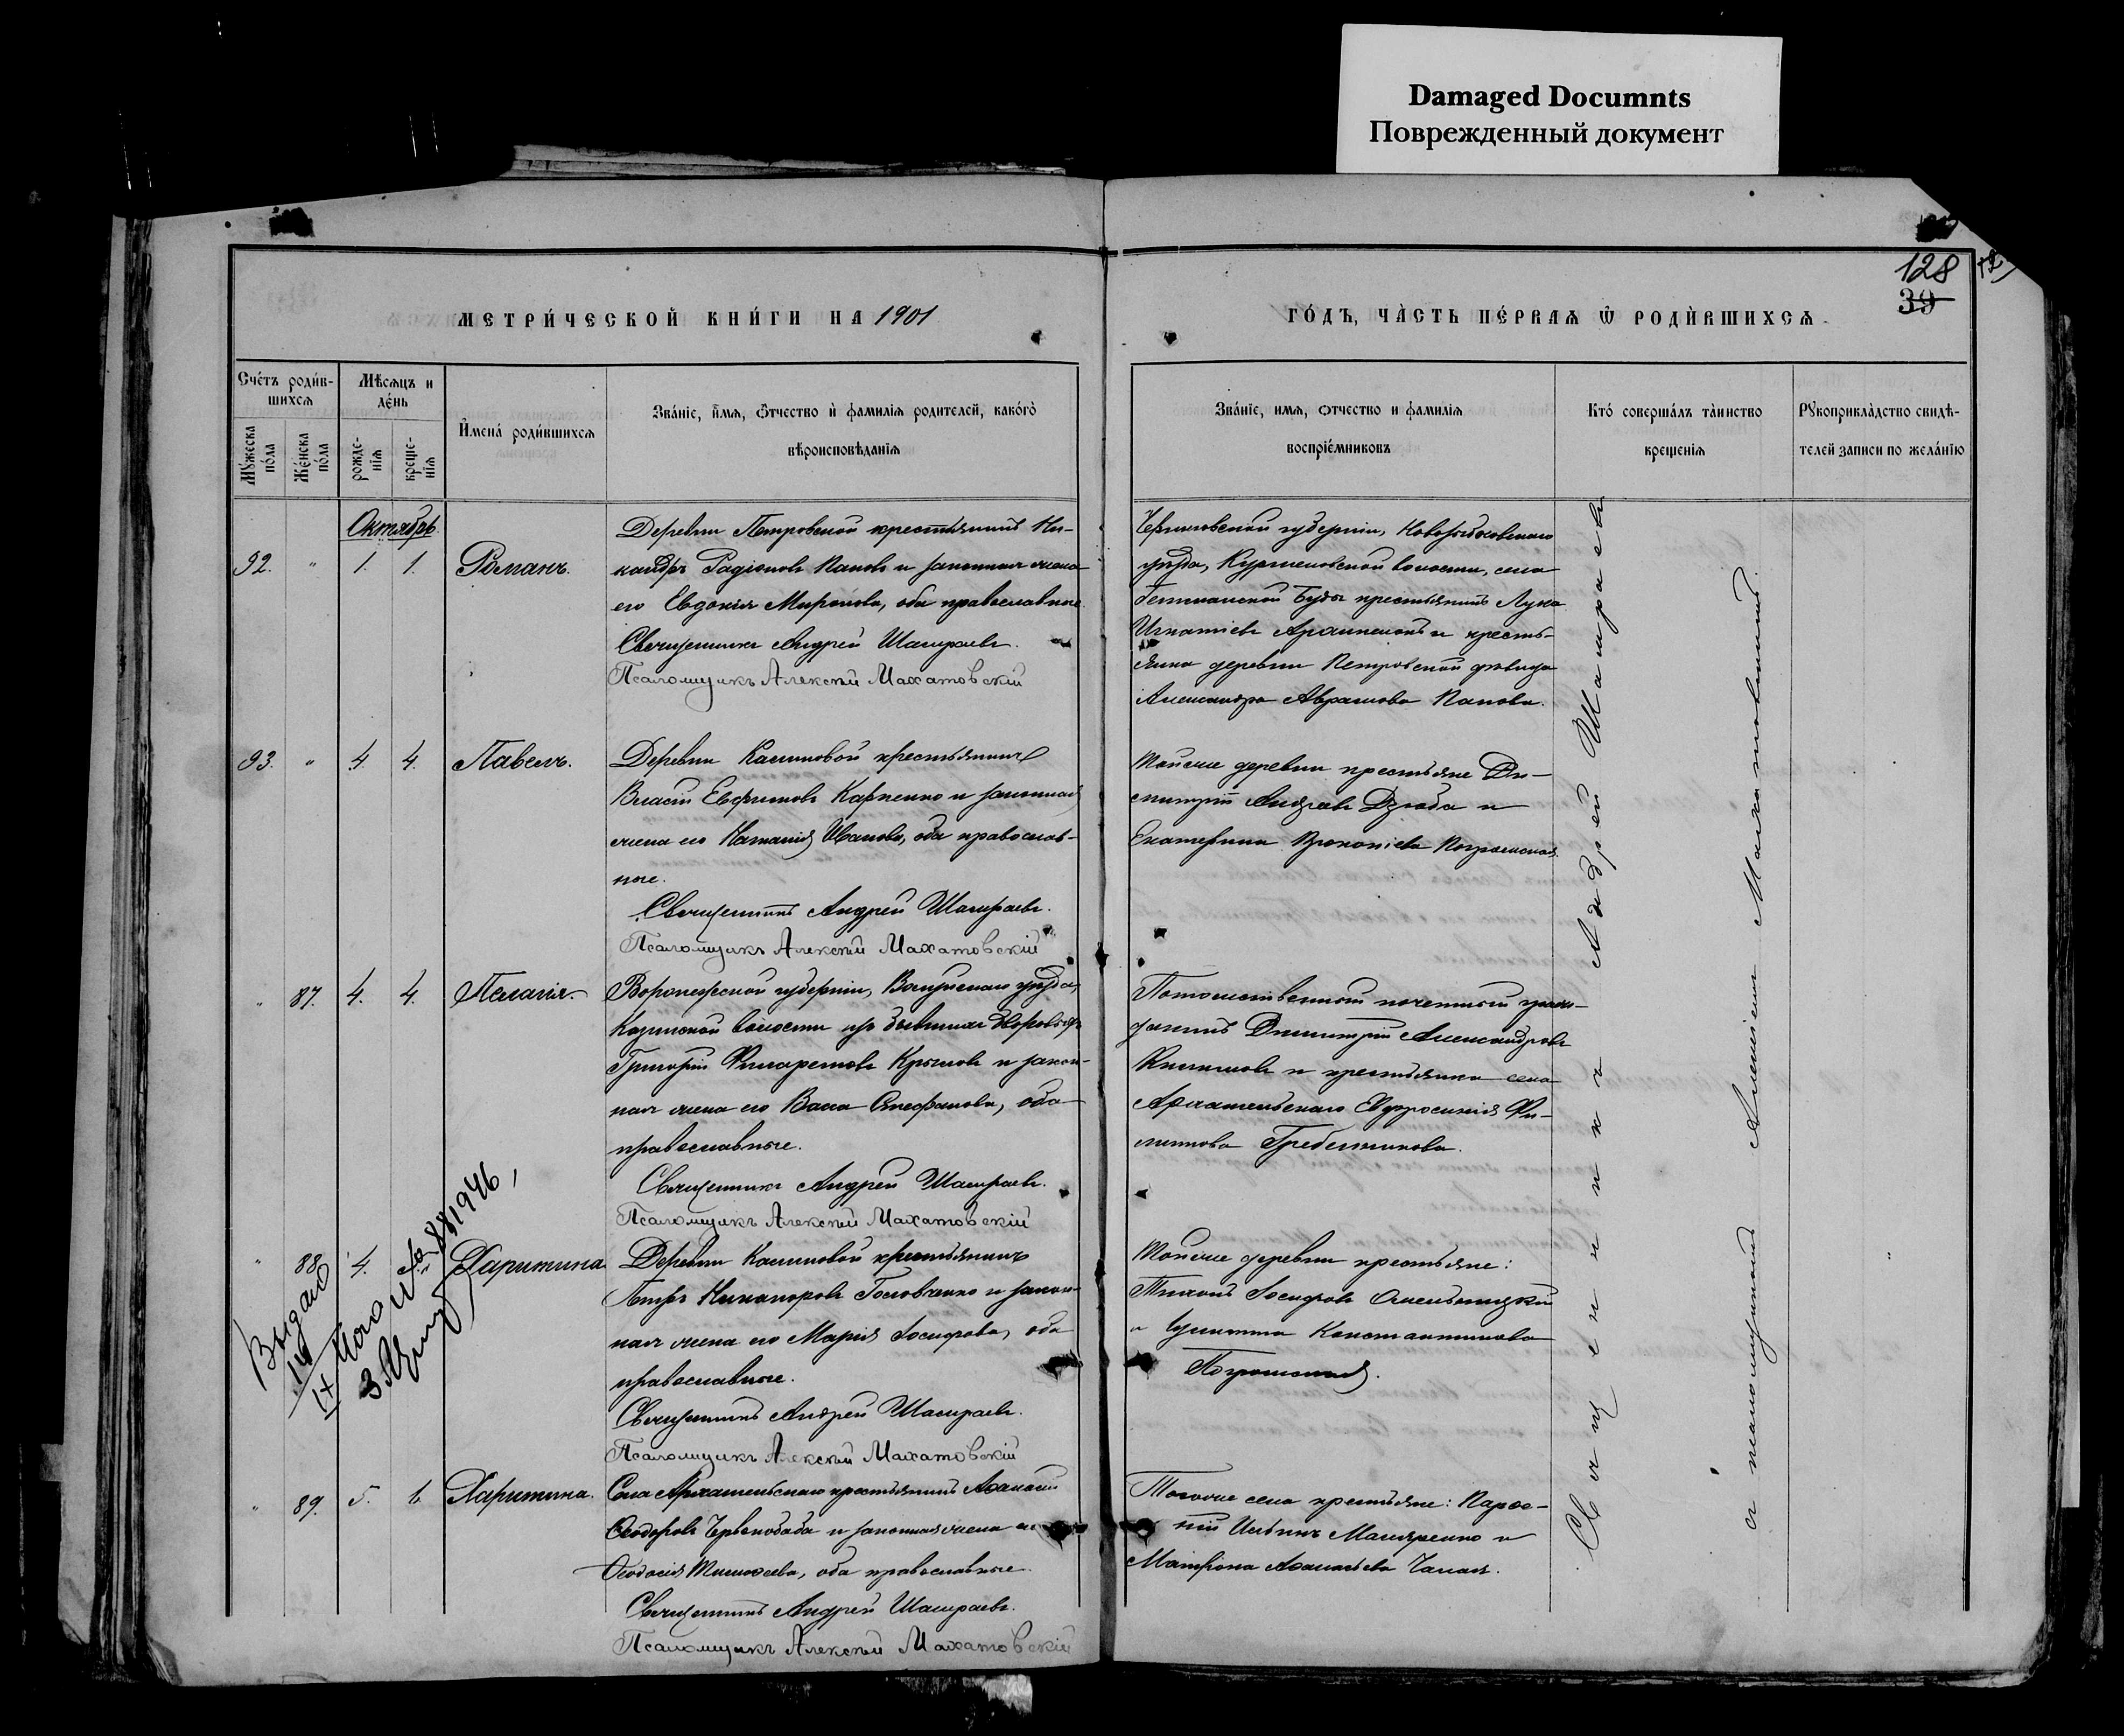 Damaged Documnts
Поврежденный документ
128
39
МЕТРИ́ЧЕСКОЙ КНИ́ГИ НА 1901
ГО́ДЪ, ЧА́СТЬ ПЕ́РВАѦ Ѿ РОДИ́ВШИХСѦ
Сче́тъ роди́в-
шихсѧ
Мѣ́сѧцъ и
де́нь
Мꙋ́жеска
по́ла
Же́нска
по́ла
рожде-
нїѧ
креще-
нїѧ
Имена́ роди́вшихсѧ
Зва́нїе, и́мѧ, ѻ́тчество и фамилїѧ родителей, како́гѡ
вѣроисповѣ́данїѧ
Зва́нїе, имѧ, ѻтчество и фамилїѧ
воспрїе́мниковъ
Кто́ соверша́лъ та́инство
крещенїѧ
Рꙋкоприкла́дство свидѣ́-
телей записи по жела́нїю
Октябрь
92. " 1. 1. Романъ.
Деревни Петровской крестьянинъ Ни-
кандръ Радіоновъ Пановъ и законная жена
его Евдокія Миронова, оба православные.
Священникъ Андрей Шашраевъ.
Псаломщикъ Алексѣй Махатовскій
Черниговской губерніи, Новозыбковскаго
уѣзда, волости, села
Гетманской Буды крестьянинъ Лука
Игнатіевъ и кресть-
янка деревни Петровской дѣвица
Александра Аврамова Панова.
93. " 4. 4. Павелъ.
Деревни Калиновой крестьянинъ
Власій Евфимовъ Карпенко и законная
жена его Наталія Иванова, оба православ-
ные.
Священникъ Андрей Шашраевъ.
Псаломщикъ Алексѣй Махатовскій
Тойже деревни крестьяне Ди-
митрій Дзюба и
Екатерина Прокопіева
" 87. 4. 4. Пелагія.
Воронежской губерніи, Валуйскаго уѣзда,
Козинской волости изъ бывшихъ дворовыхъ
Григорій Филаретовъ Крыловъ и закон-
ная жена его Васса Стефанова, оба
православные.
Священникъ Андрей Шашраевъ.
Псаломщикъ Алексѣй Махатовскій
Потомственный почетный граж-
данинъ Димитрій Александровъ
и крестьянка села
Архангельскаго Евфросинія Фи-
липпова Гребенникова.
" 88 4. Харитина
Деревни Калиновой крестьянинъ
Петръ Никаноровъ Головченко и закон-
ная жена его Марія Іосифова, оба
православные.
Священникъ Андрей Шашраевъ.
Псаломщикъ Алексѣй Махатовскій
Тойже деревни крестьяне:
Тихонъ Іосифовъ Омельницкій
и Іулитта Константинова
Выдано
14
IX
1946,
" 89. 5. 6 Харитина.
Села Архангельскаго крестьянинъ Аѳанасій
Ѳеодоровъ Червонобаба и законная жена его
Ѳеодосія Тимоѳеева, оба православные.
Священникъ Андрей Шашраевъ.
Псаломщикъ Алексѣй Махатовскій
Тогоже села крестьяне: Парѳе-
ній Ильинъ Маляренко и
Матрона Аѳанасьева Чалая.
Священникъ Андрей Шашраевъ
и псаломщикъ Алексѣй Махатовскій